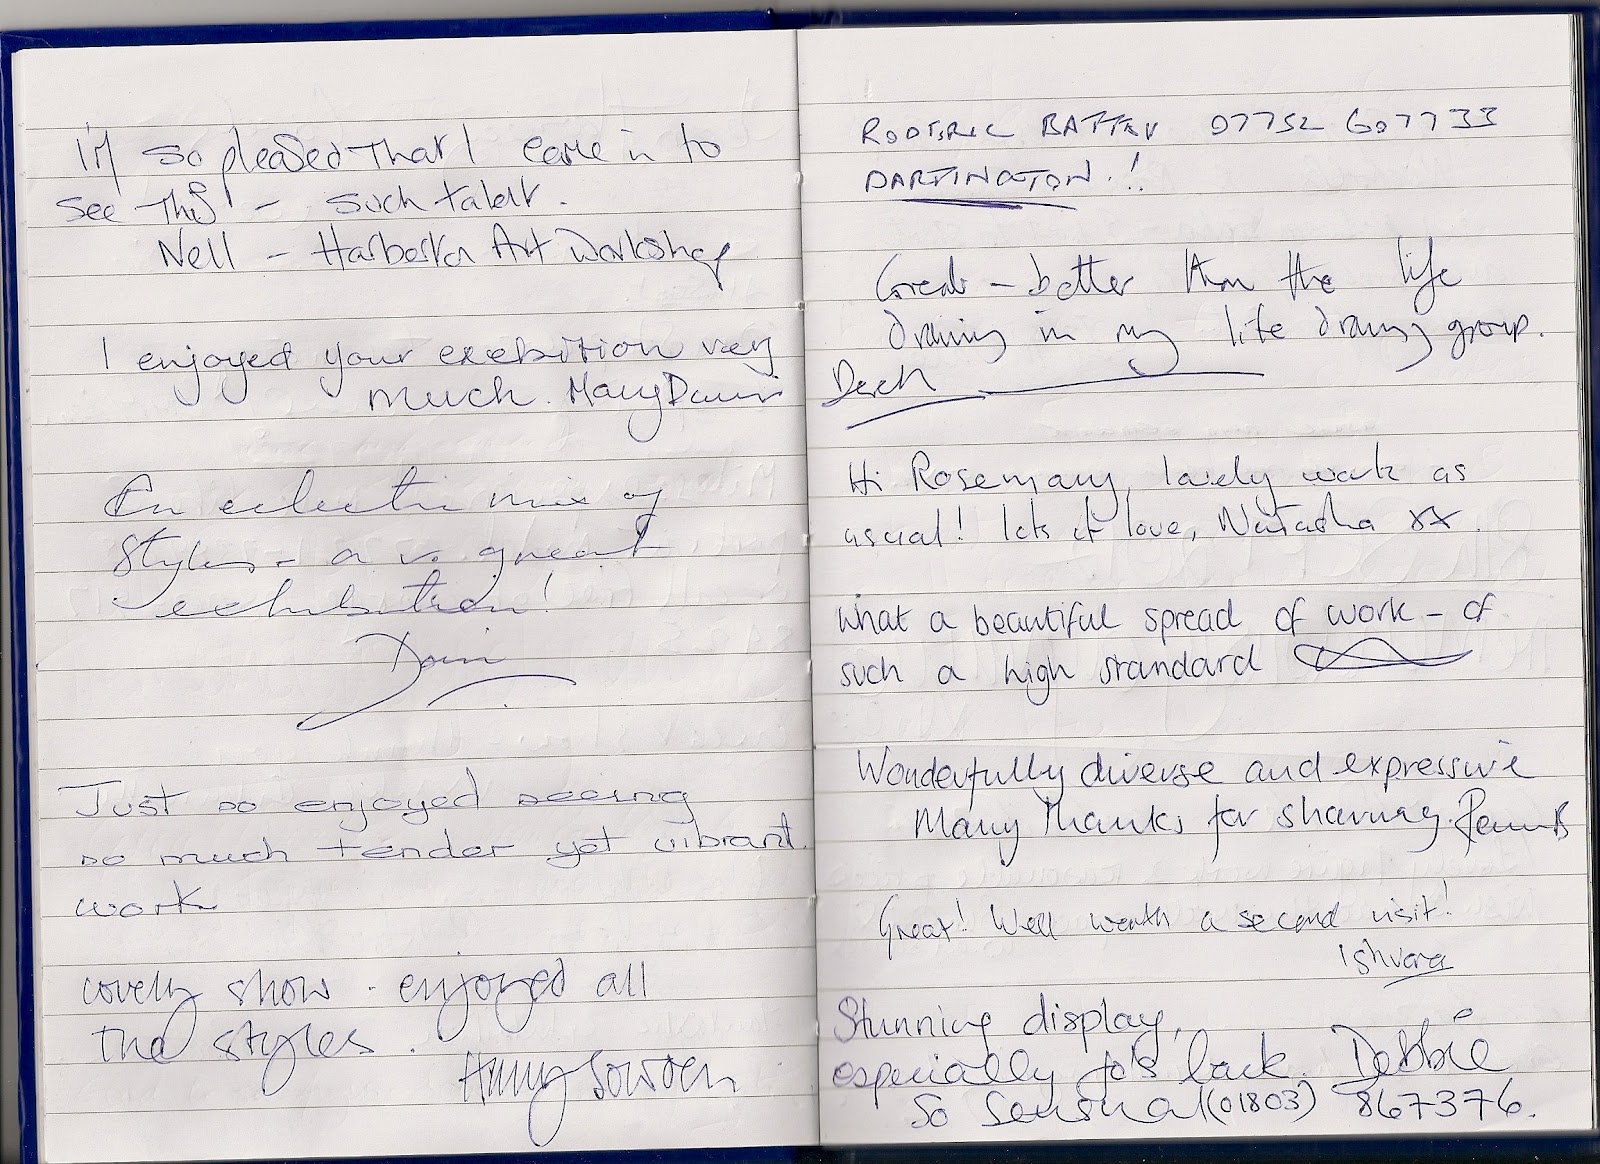 I'm so pleased that I came in to
see this - such talent.
Nell - Harberton Art Workshop
I enjoyed your exebition very
much. Mary
An eclectic mix of
styles - a v. great
exhibition!
Just so enjoyed seeing
so much tender yet vibrant
work
Lovely show. enjoyed all
the styles.
Sowden
RODERIC BATTEN 07752 607733
DARTINGTON!
Great - better than the life
drawing in my life drawing group.
Hi Rosemary, lovely work as
usual! lots of love, Natasha xx.
What a beautiful spread of work - of
such a high standard
Wonderfully diverse and expressive
Many thanks for sharing.
Great! Well worth a second visit!
Ishvara
Stunning display,
especially Jo's back. Debbie
So Sensual (01803) 867376.